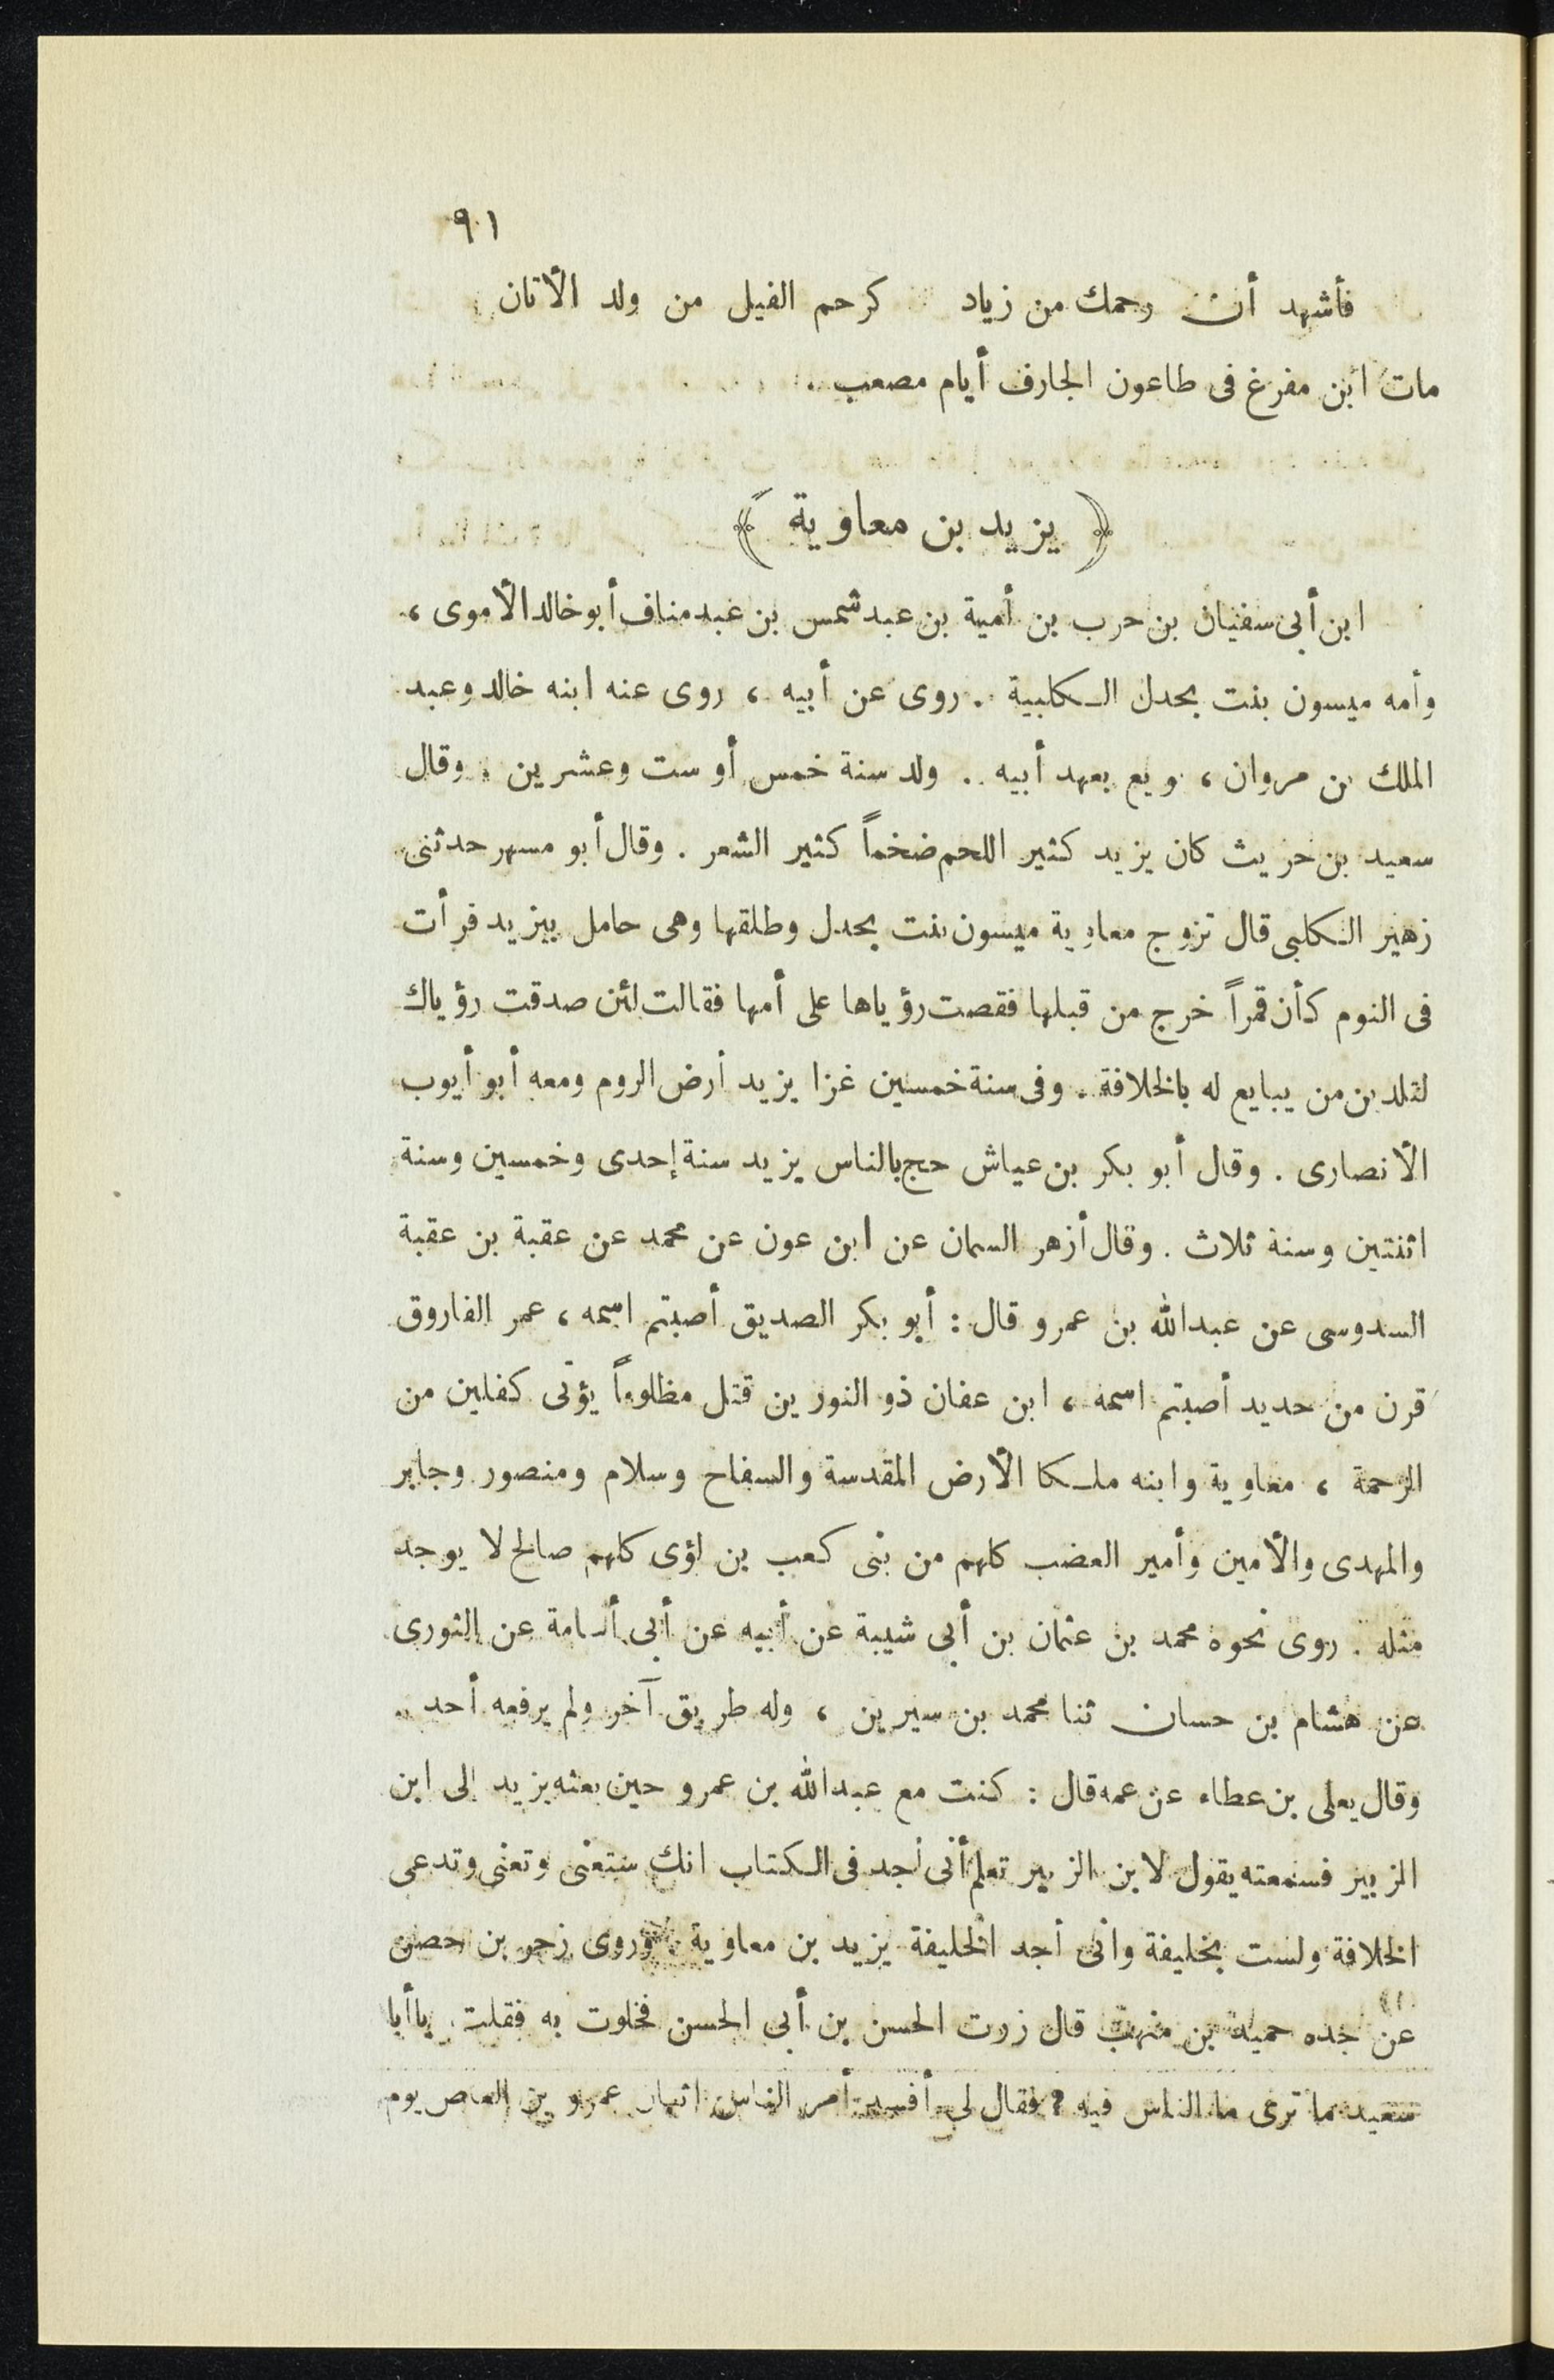 ٩١
فأشهد أن رحمك من زياد كرحم الفيل من ولد الأتان
مات ابن مفرغ فى طاعون الجارف أيام مصعب .
﴿ يزيد بن معاوية ﴾
ابن أبى سفيان بن حرب بن أمية بن عبد شمس بن عبد مناف أبو خالد الأموى ،
وأمه ميسون بنت بحدل الكلبية . روى عن أبيه ، روى عنه ابنه خالد وعبد
الملك بن مروان ، ويع بعهد أبيه . ولد سنة خمس أو ست وعشرين . وقال
سعيد بن حريث كان يزيد كثير اللحم ضخماً كثير الشعر . وقال أبو مسهر حدثنى
زهير الكلبى قال تزوج معاوية ميسون بنت بحدل وطلقها وهى حامل بيزيد فرأت
فى النوم كأن قمراً خرج من قبلها فقصت رؤياها على أمها فقالت لئن صدقت رؤياك
لتلدين من يبايع له بالخلافة . وفى سنة خمسين غزا يزيد أرض الروم ومعه أبو أيوب
الأنصارى . وقال أبو بكر بن عياش حج بالناس يزيد سنة إحدى وخمسين وسنة
اثنتين وسنة ثلاث . وقال أزهر السمان عن ابن عون عن محمد عن عقبة بن عقبة
السدوسى عن عبدالله بن عمرو قال : أبو بكر الصديق أصبتم اسمه ، عمر الفاروق
قرن من حديد أصبتم اسمه ، ابن عفان ذو النورين قتل مظلوماً يؤتى كفلين من
الرحمة ، معاوية وابنه ملكا الأرض المقدسة والسفاح وسلام ومنصور وجابر
والمهدى والأمين وأمير العضب كلهم من بنى كعب بن لؤى كلهم صالح لا يوجد
مثله . روى نحوه محمد بن عثمان بن أبى شيبة عن أبيه عن أبى أسامة عن الثورى
عن هشام بن حسان ثنا محمد بن سيرين ، وله طريق آخر ولم يرفعه أحد .
وقال يعلى بن عطاء عن عمه قال : كنت مع عبدالله بن عمرو حين بعثه يزيد إلى ابن
الزبير فسمعته يقول لابن الزبير تعلم أنى أجد فى الكتاب انك ستعنى وتعنى وتدعى
الخلافة ولست بخليفة وانى أجد الخليفة يزيد بن معاوية . وروى زحر بن حصن
عن جده حميد بن منهب قال زرت الحسن بن أبى الحسن فخلوت به فقلت يا أبا
سعيد ما ترى ما الناس فيه ؟ فقال لى أفسد أمر الناس اثنان عمرو بن العاص يوم